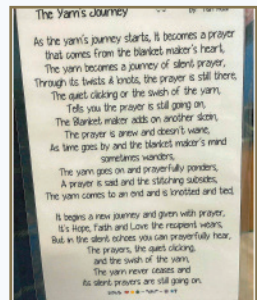 The Yarn's Journey
By:
As the yarn's journey starts, it becomes a prayer
that comes from the blanket maker's heart,
The yarn becomes a journey of silent prayer,
Through its twists & knots, the prayer is still there,
The quiet clicking or the swish of the yarn,
Tells you the prayer is still going on,
The Blanket maker adds on another skein,
The prayer is anew and doesn't wane,
As time goes by and the blanket maker's mind
sometimes wanders,
The yarn goes on and prayerfully ponders,
A prayer is said and the stitching subsides,
The yarn comes to an end and is knotted and tied,
It begins a new journey and given with prayer,
It's Hope, Faith and Love the recipient wears,
But in the silent echoes you can prayerfully hear,
The prayers, the quiet clicking,
and the swish of the yarn,
The yarn never ceases and
its silent prayers are still going on.